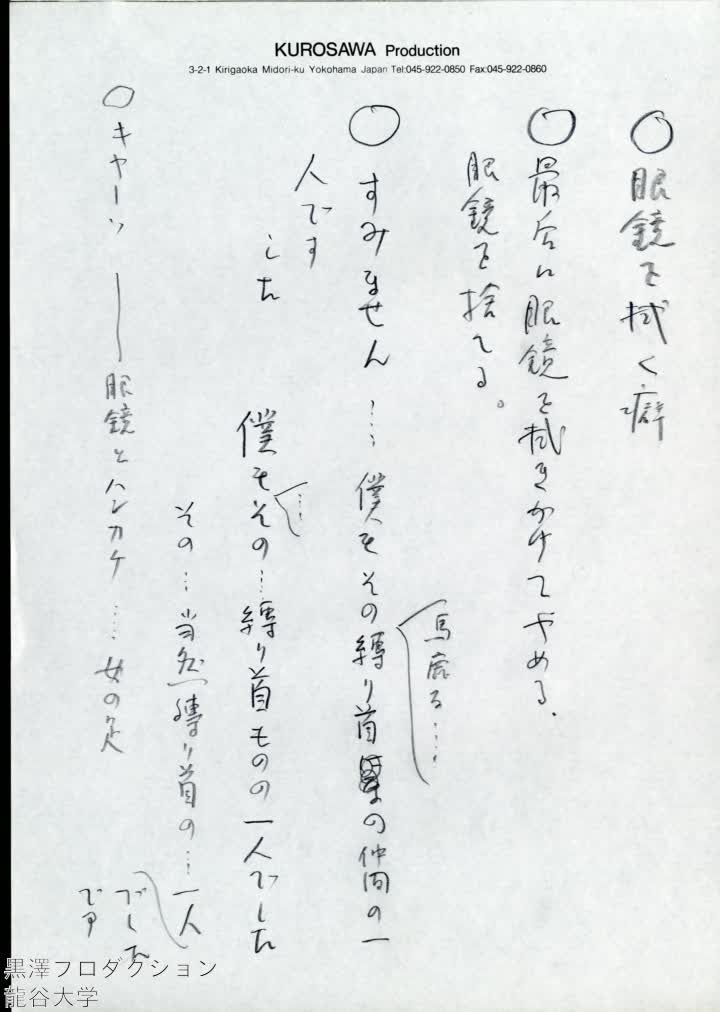 KUROSAWA Production
3-2-1 Kirigaoka Midori-ku Yokohama Japan Tel:045-922-0850 Fax:045-922-0860
○ 眼鏡を拭く癖
○ 最后に眼鏡を拭きかけてやめる、
眼鏡を捨てる。
馬鹿る……
○ すみません……僕もその縛り首の仲間の一
人です
した
……
僕もその…縛り首ものの一人でした
その…当然縛り首の…一人
でした
でア
○ キャーッ ── 眼鏡とハンカチ……女の足
黒澤プロダクション
龍谷大学